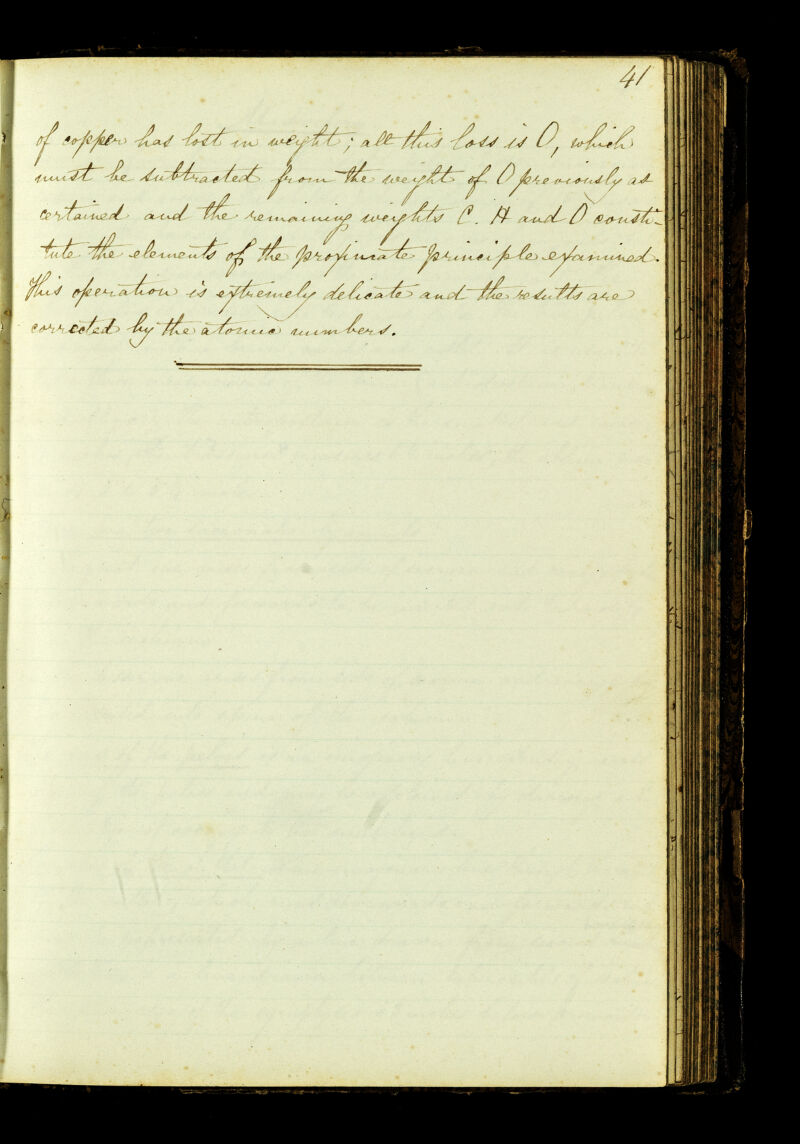 41
of copper has lost in weight; all this loss is O, which
must be subtracted from the weight of O previously as
certained and the remaining weights C. H and O consti-
tute the elements of the proximate principle examined.
This operation is extremely delicate and the results are
corrected by the atomic numbers.